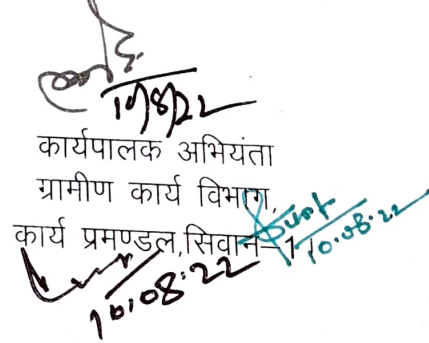 10/8/22
कार्यपालक अभियंता
ग्रामीण कार्य विभाग,
कार्य प्रमण्डल,सिवान-1
10.08.22
10.08.22